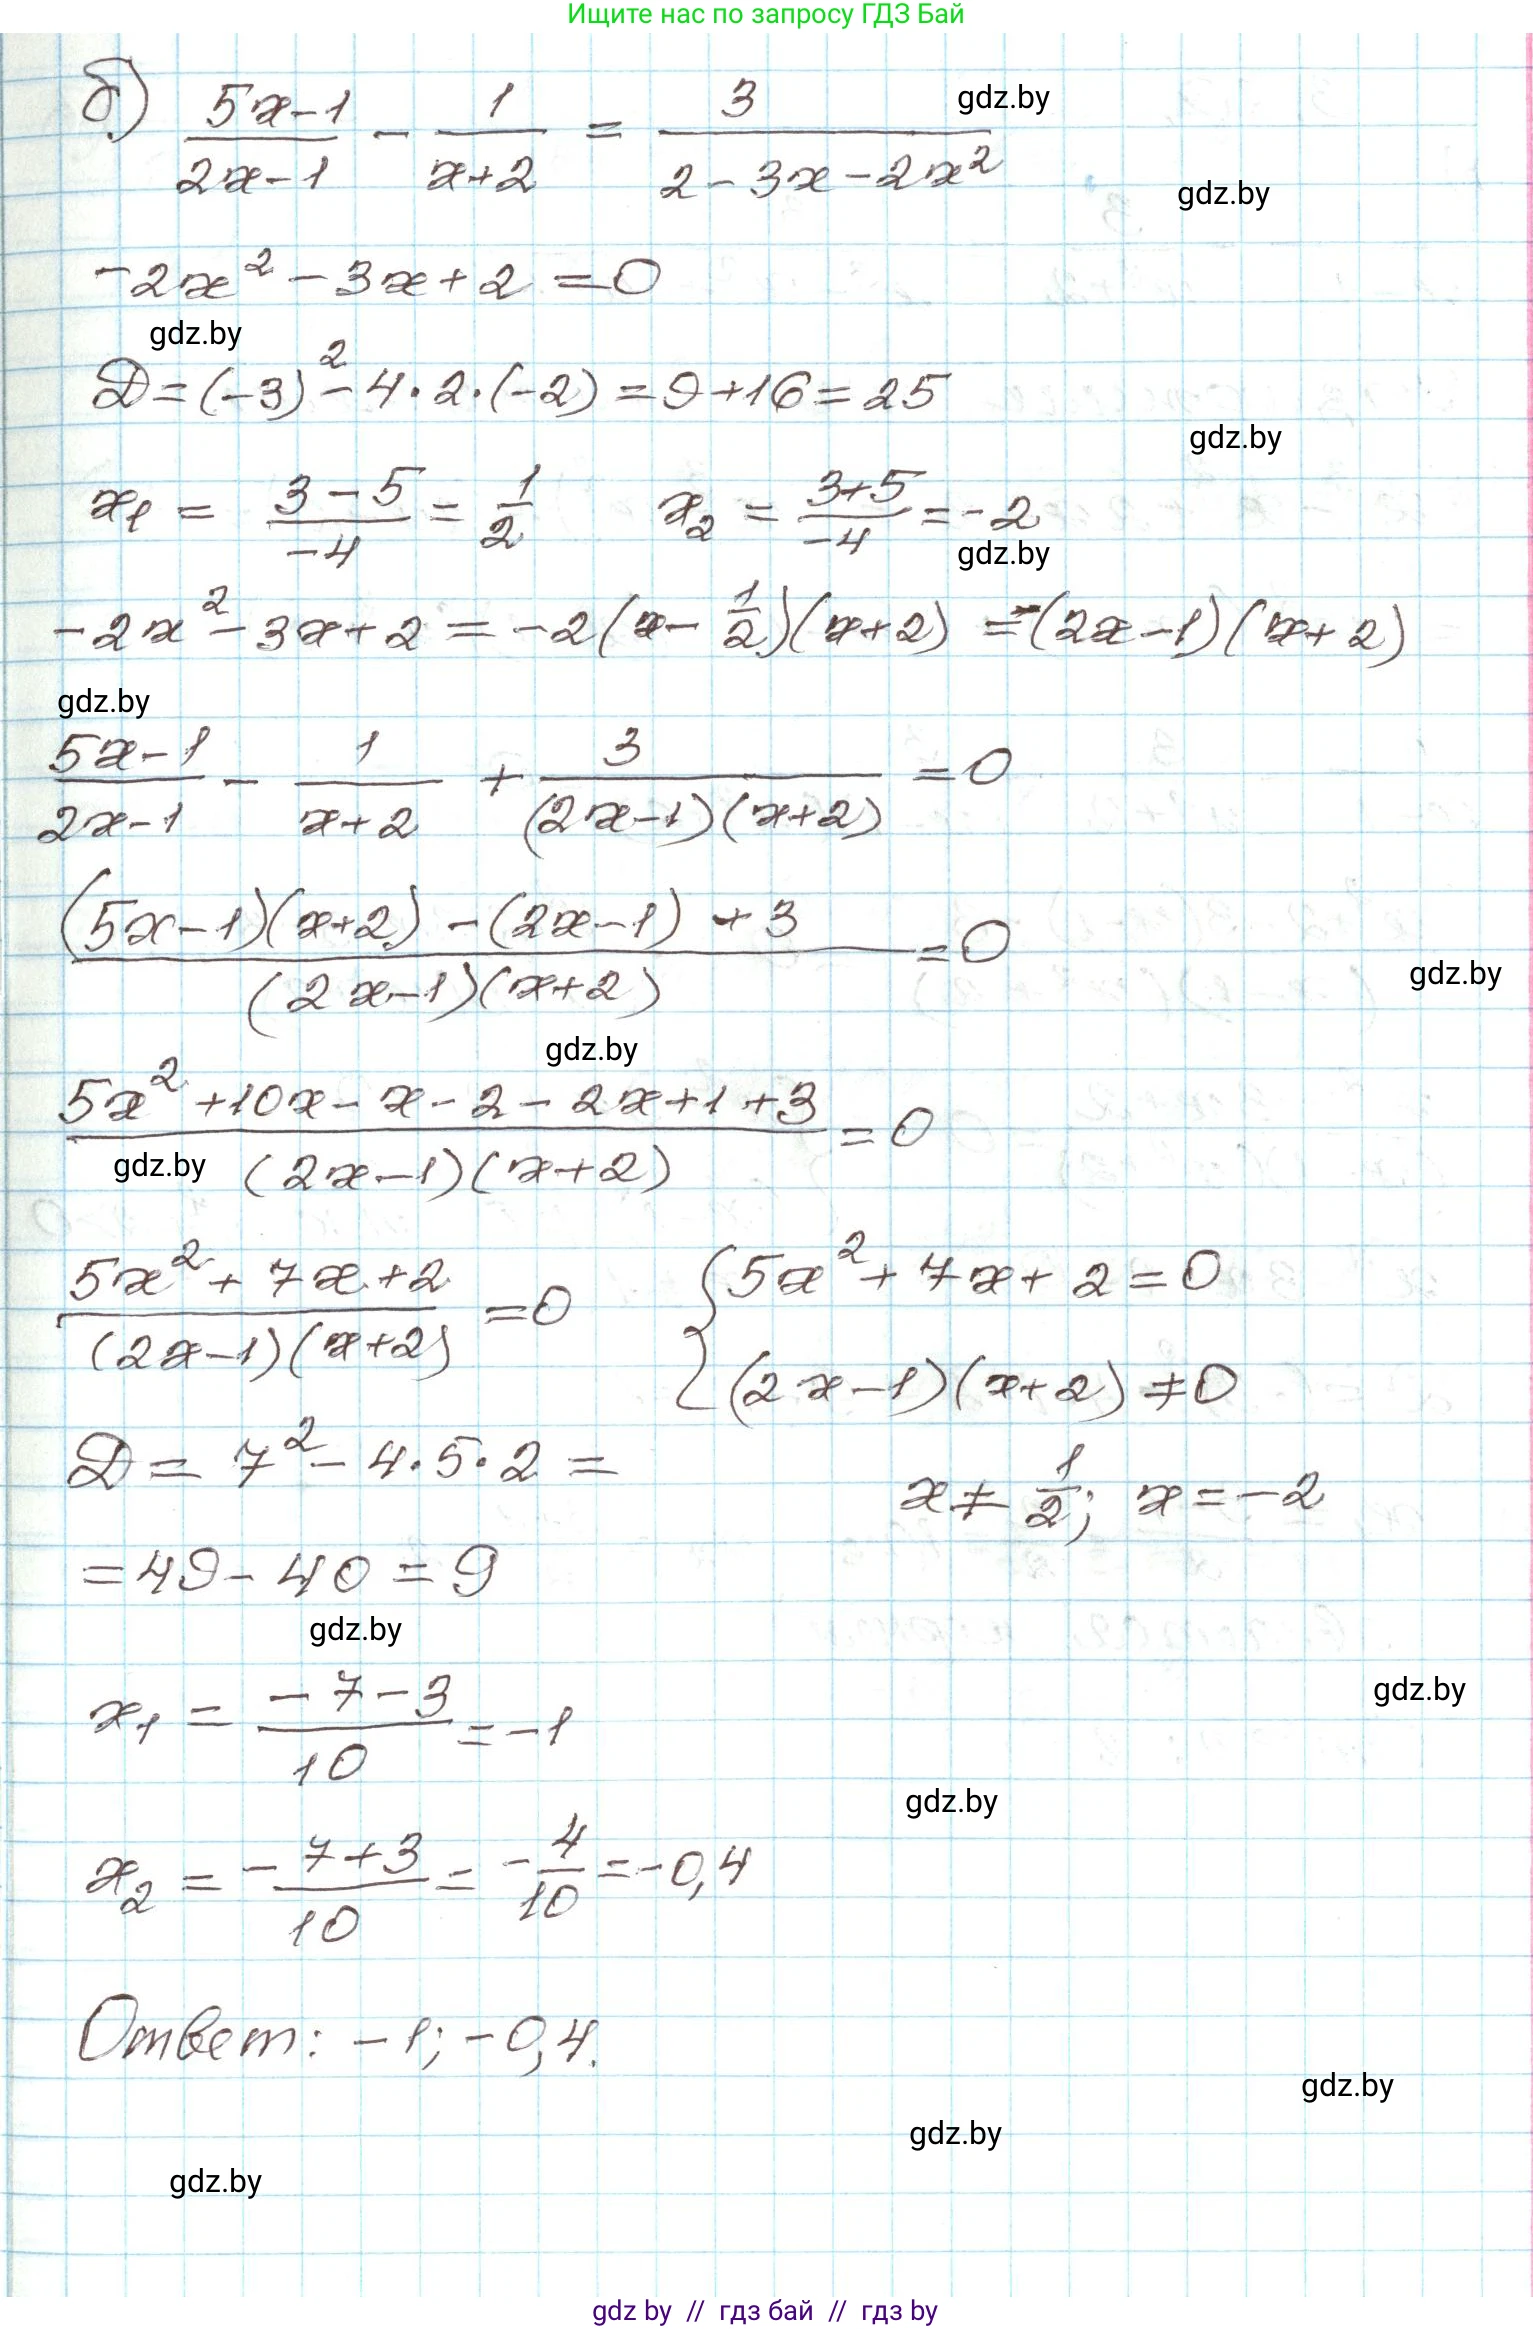 Ищите нас по запросу ГДЗ Бай
б) (5x-1)/(2x-1) - 1/(x+2) = 3/(2-3x-2x²)
gdz.by
gdz.by
-2x² - 3x + 2 = 0
gdz.by
D = (-3)² - 4·2·(-2) = 9 + 16 = 25
gdz.by
x₁ = (3-5)/(-4) = 1/2    x₂ = (3+5)/(-4) = -2
gdz.by
-2x² - 3x + 2 = -2(x - 1/2)(x+2) = -(2x-1)(x+2)
gdz.by
(5x-1)/(2x-1) - 1/(x+2) + 3/((2x-1)(x+2)) = 0
((5x-1)(x+2) - (2x-1) + 3)/((2x-1)(x+2)) = 0
gdz.by
gdz.by
(5x² + 10x - x - 2 - 2x + 1 + 3)/((2x-1)(x+2)) = 0
gdz.by
(5x² + 7x + 2)/((2x-1)(x+2)) = 0    { 5x² + 7x + 2 = 0
(2x-1)(x+2) ≠ 0
D = 7² - 4·5·2 =
x ≠ 1/2; x = -2
= 49 - 40 = 9
gdz.by
gdz.by
x₁ = (-7-3)/10 = -1
gdz.by
x₂ = (-7+3)/10 = -4/10 = -0,4
Ответ: -1; -0,4.
gdz.by
gdz.by
gdz.by
gdz by // гдз бай // гдз by